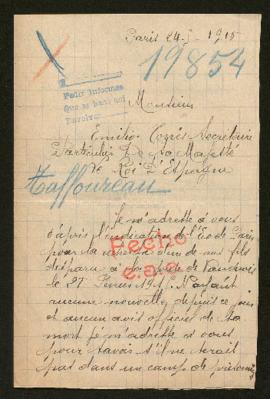 Paris 24 - 1915
19854
Pedir informes
Que se
Monsieur
Emilio Torrès Secrétaire
Particulier De Sa Majesté
Le Roi D'Espagne
Taffoureau
Je m'adresse à vous
d'après l'indication de l'Echo de Paris
pour la recherche d'un de mes fils
disparu à
le 27 Février 1915 N'ayant
aucune nouvelle depuis ce jour
et aucun avis officiel de sa
mort je m'adresse à vous
pour savoir s'il ne serait
pas dans un camp de prisonniers
Hecho